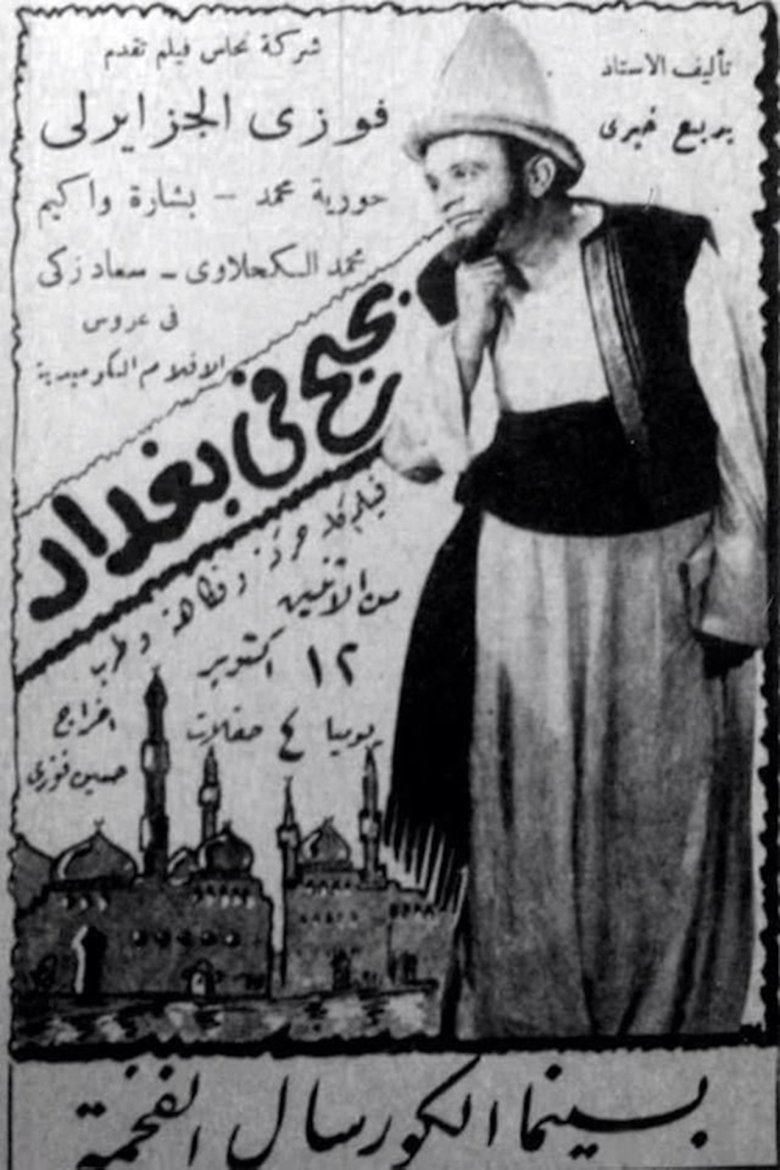 شركة نحاس فيلم تقدم
فوزى الجزايرلى
حورية محمد - بشارة واكيم
محمد الكحلاوى - سعاد زكى
فى عروس
الافلام الكوميدية
تأليف الاستاذ
بديع خيرى
بحبح فى بغداد
فيلم كله مرح وفكاهة وطرب
من الاثنين
١٢ اكتوبر
يوميا ٤ حفلات
اخراج
حسين فوزى
بسينما الكورسال الفخمة